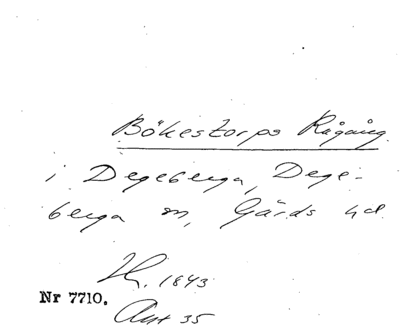 Bökestorps Rågång
i Degeberga, Dege-
berga sn, Gärds hd.
H. 1843
Nr 7710.
Avst 35